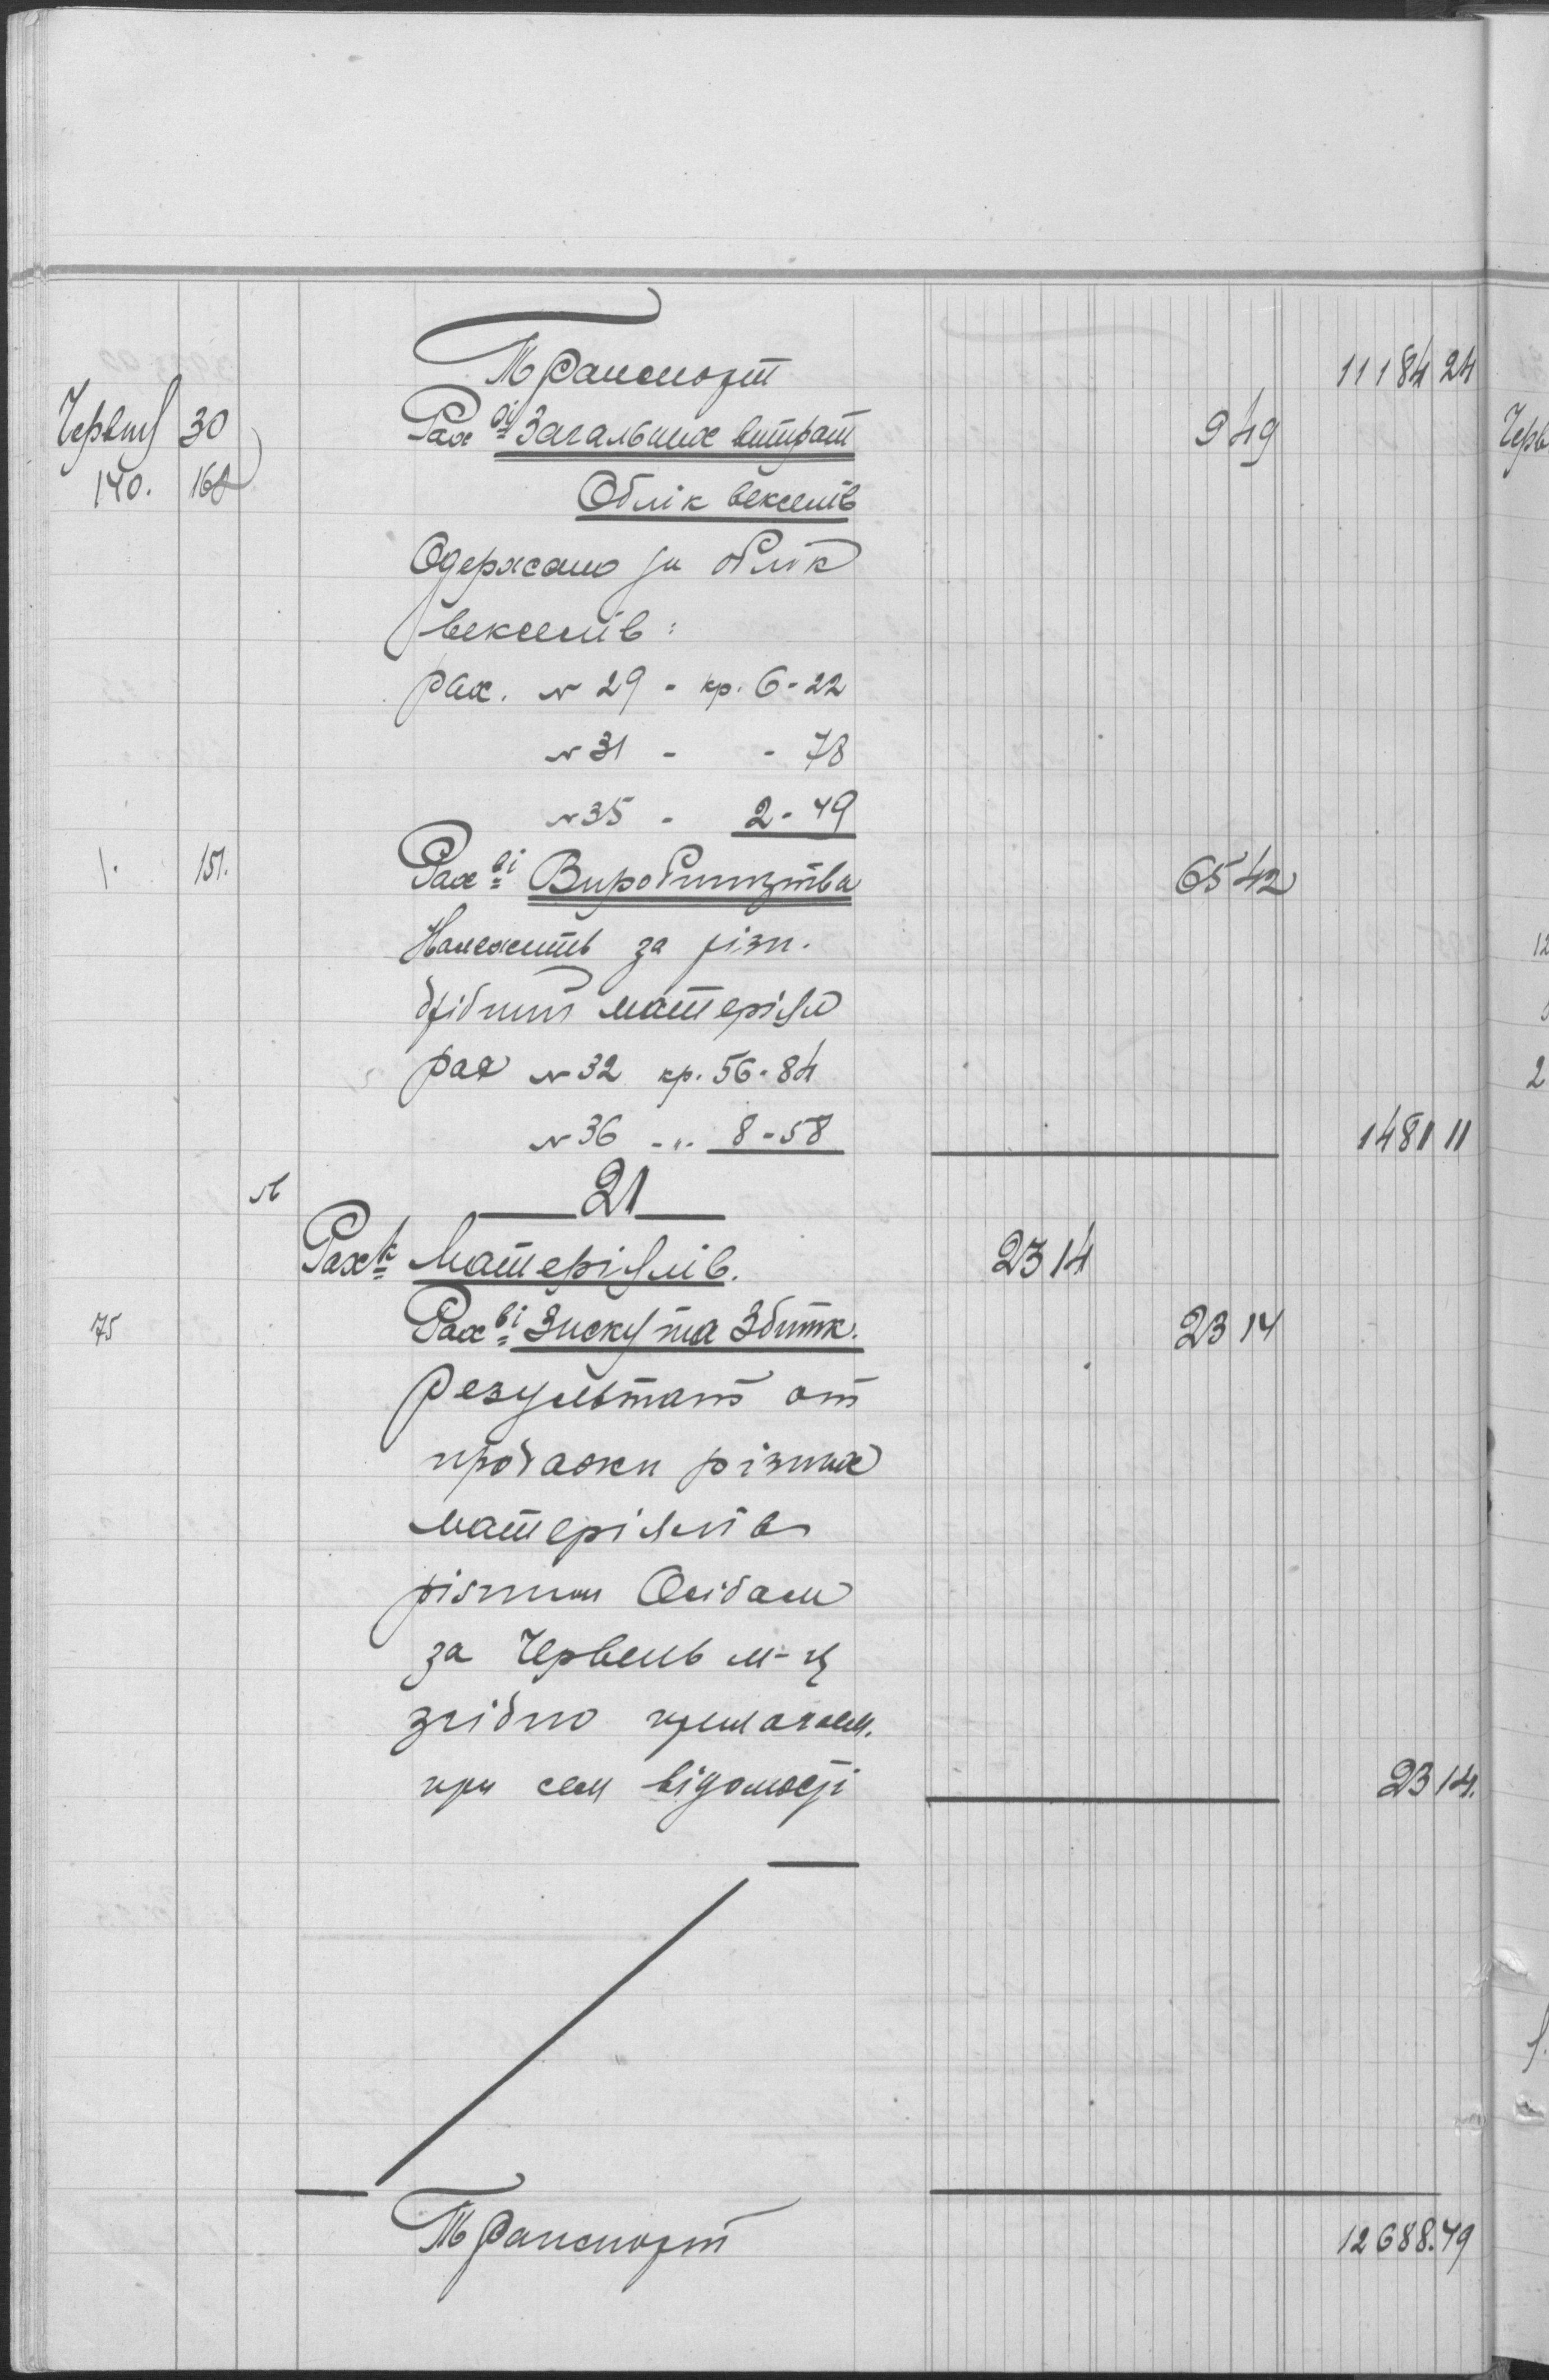 Транспорт 11184 24
Червня 30 Рах-ві Загальних витрат 9 49
140. 160 Облік векселів
Одержано за облік
векселів:
рах. № 29 - кр. 6-22
№ 31 - - 78
№ 35 - 2-49
1. 151. Рах-ві Виробництва 65 42
Належить за різн.
дрібний матеріял
рах № 32 кр. 56-84
№ 36 -"- 8-58 1481 11
21
Рах-к Матеріялів. 23 14
75 Рах-ві Зиску та Збитк. 23 14
Результат от
продажи різних
матеріялів
різним Осібам
за Червень м-ць
згідно прикладем.
при сем відомості 23 14.
Транспорт 12688.49
Черв
12
2